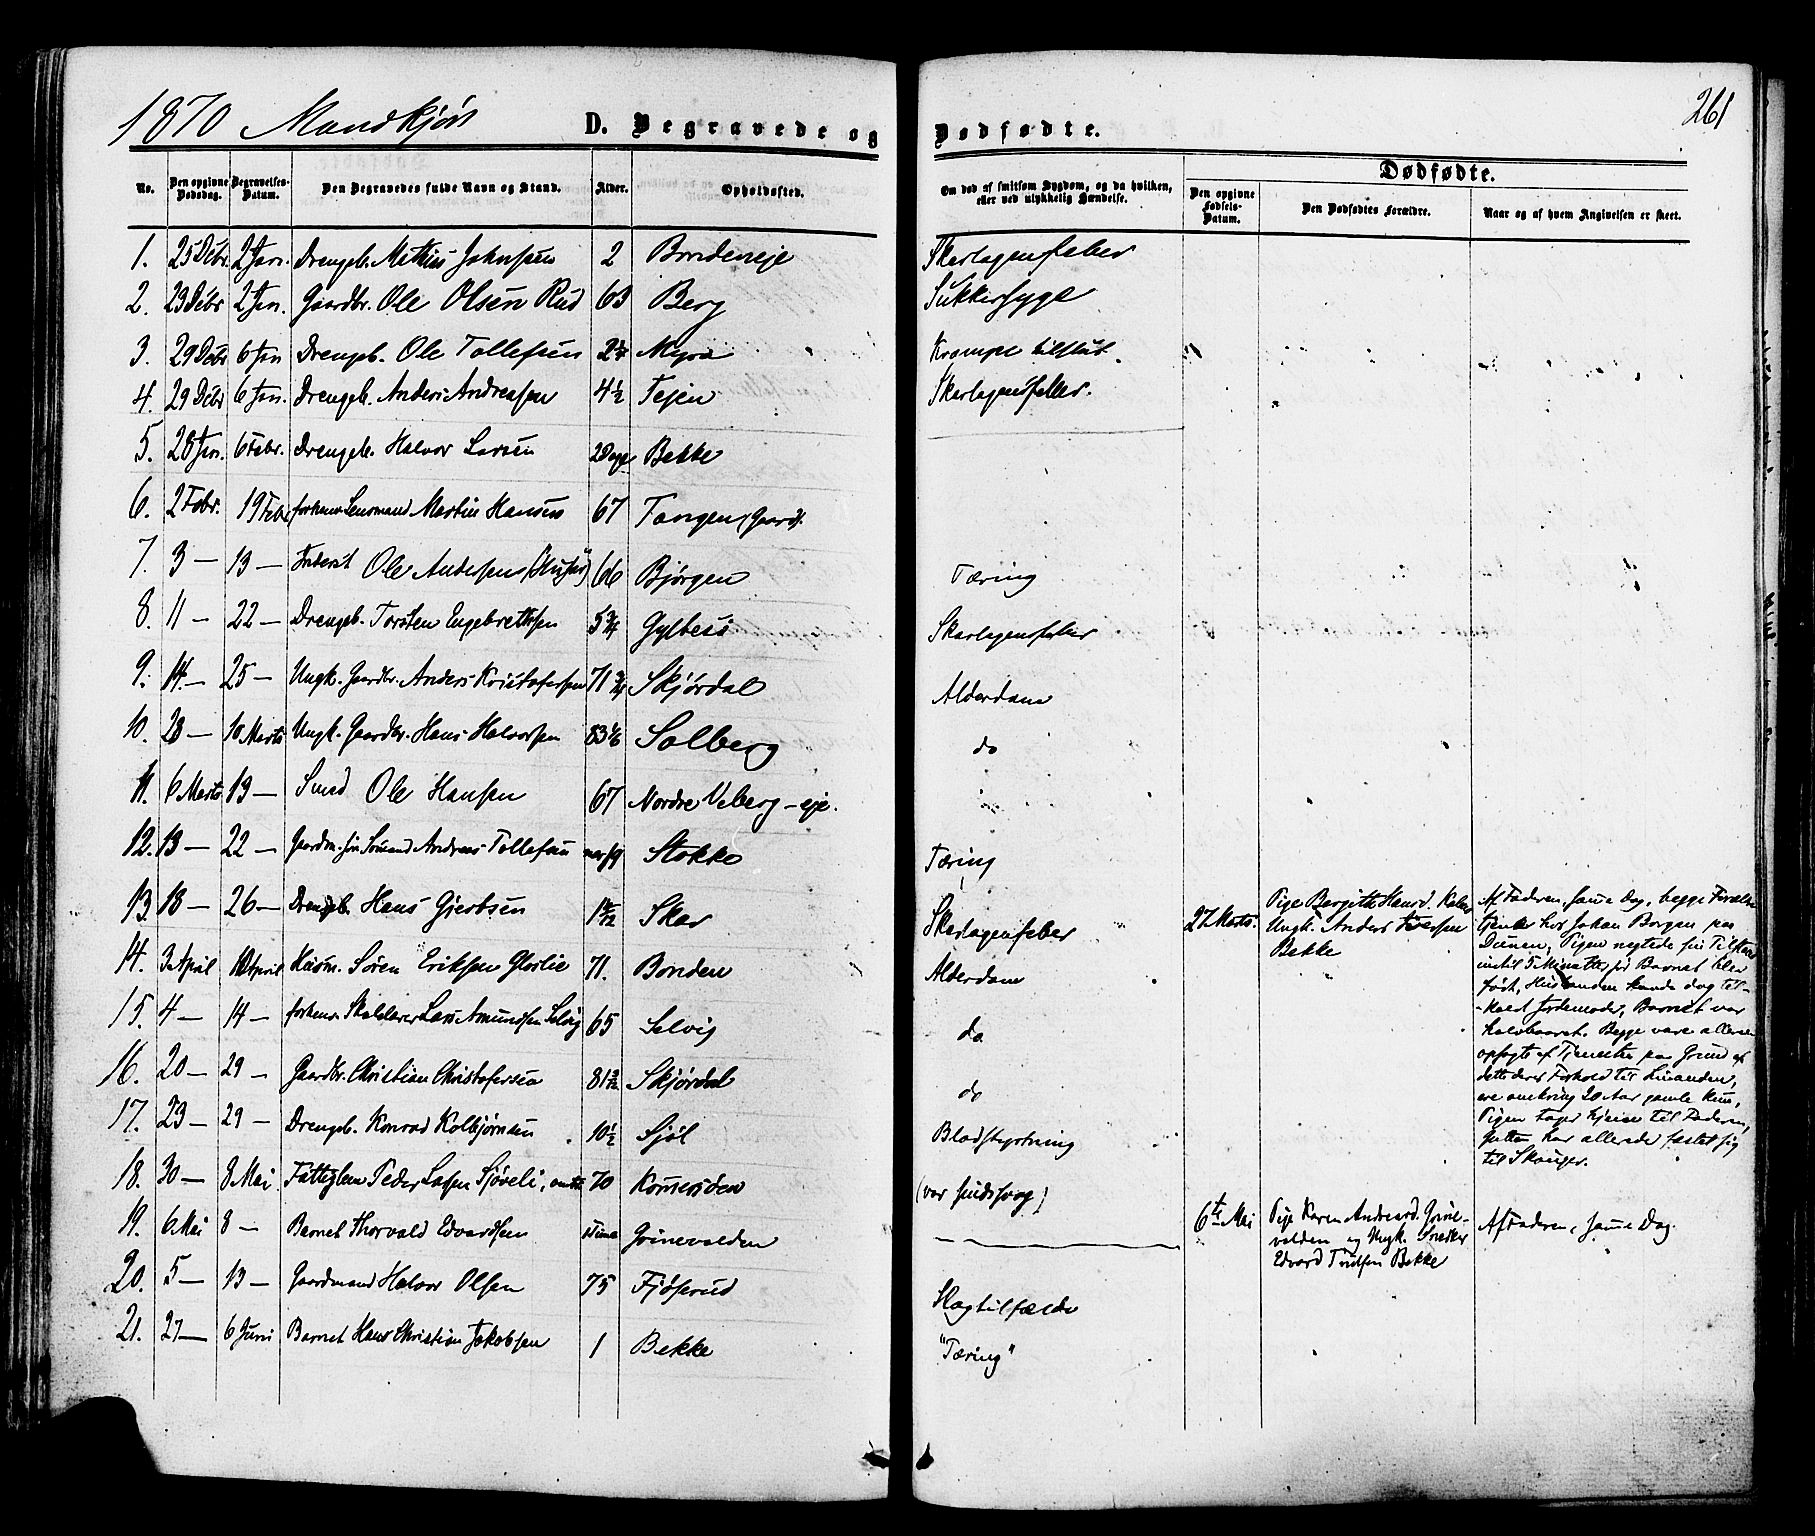 1870 Mandkjøn D. Begravede og Dødfødte. 261
No. Den opgivne Dødsdag. Begravelses-Datum. Den Begravedes fulde Navn og Stand. Alder. Opholdssted. Om død af smitsom Sygdom, og da hvilken, eller ved ulykkelig Hændelse.
Dødfødte.
Den opgivne Fødsels-Datum. Den Dødfødtes Forældre. Naar og af hvem Angivelsen er skeet.
1. 25 Debr. 2 Jan. Drengeb. Mathias Johnsen 2 Bondeneje Skarlagensfeber
2. 29 Debr 2 Jan. Gaardbr. Ole Olsen Rud 63 Berg Sukkersyge
3. 29 Debr 6 Jan Drengeb. Ole Tollefsen 2½ Myra Krampetilfæl.
4. 29 Debr 6 Jan. Drengeb. Anders Andreasen 4½ Tejen Skarlagensfeber.
5. 28 Jan. 6 Febr. Drengeb. Halvor Larsen 2 Dage Bekke
6. 2 Febr. 19 Febr forhenv. Lensmand Martin Hansen 67 Tangen, Gaard.
7. 3 — 13 — Inderst Ole Andersen 66 Bjørgen Tæring
8. 11 — 22 — Drengeb. Torsten Engebrethsen 5¾ Gylbess Skarlagensfeber
9. 14 — 25 — Ungk. Gaardbr. Anders Kristofersen 71¾ Skjørdal Alderdom
10. 28 — 10 Marts Ungk. Gaardbr. Hans Halvorsen 83 Solberg do
11. 6 Marts 19 — Smed Ole Hansen 67 Nordre Veberg-eje.
12. 13 — 22 — Gaardm. søn Sømand Andreas Tollefsen 19 Stokke Tæring
13 18 — 26 — Drengeb. Hans Gjertsen 1 Skar Skarlagensfeber
14. 3 April 10 April Huusm. Søren Eriksen Glorlie 71. Bonden Alderdom
15. 4 — 14 — forhenv. Skolelærer Lars Amundsen Selvig 65 Selvig do
16. 20 — 29 — Gaardbr. Christian Christofersen 81 Skjørdal do
17. 23 — 29 — Drengeb. Konrad Kolbjørnsen 10½ Fjøl Blodstyrtning
18. 30 — 8 Mai Fattiglem Peder Larsen Sjøveli, 70 Komersøen (var sindssvag)
19. 6 Mai 8 — Barnet Thorvald Edvardsen 1 Time Grinevolden
20. 5 — 13 — Gaardmand Halvor Olsen 75 Fjøserud Slagtilfælde
21. 27 — 6 Juni Barnet Hans Christian Jakobsen 1 Bekke "Tæring"
27. Marts. Pige Bergitte Hansd.
Ungk. Anders Iversen
Bekke
Af Faderen, samme Dag, begge Forældre
tjente hos Johan Borgen paa
Dunen, Pigen negtede sin Tilstand
indtil 5 Minutter før Barnet blev
født, Husbonden havde dog til-
kaldt Jordemoder, Barnet var
halvbaaret. Begge vare allerede
opsagte af Tjenesten paa Grund af
dette deres Forhold til hinanden,
ere omkring 20 Aar gamle kun,
Pigen tager hjem til Faderen,
Gutten har allerede fæstet sig
til Skouger.
6te Mai Pige Karen Andreasd. Grine-
volden og Ungk. Snedker
Edvard Knudsen Bekke
Af Faderen, samme Dag.